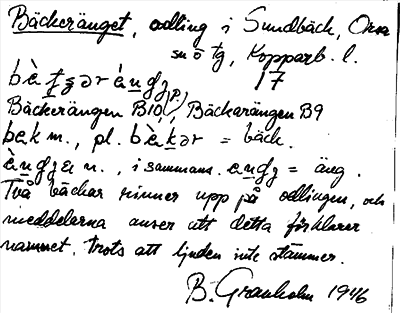 Bäckeränget, odling i Sundbäck, Orsa
sn o tg, Kopparb. l.
17
Bäckerängen B10 (?), Bäckarängen B9
bɛk m., pl. = bäck.
n., i sammans. = äng.
Två bäckar rinner upp på odlingen, och
meddelarna anser att detta förklarar
namnet, trots att ljuden inte stämmer.
B. Granholm 1946